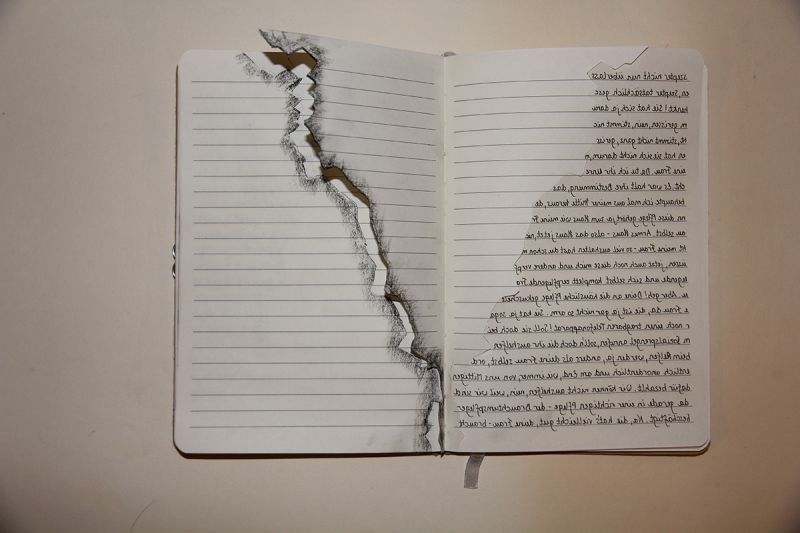 Szepter nicht nun überlasse
en Szepter tatsächlich gesc
henkt! Sie hat sich ja dann
gerissen, nein, stimmt nic
ht. stimmt nicht ganz, geris
en hat sie sich nicht darum,
eine Frau. Da tu ich ihr Unre
cht. Es war ihre Bestimmung, das
behaupte ich mal aus meiner Mitte heraus, de
nn diese Pflege gehört ja zum Haus wie Frau
zu selbst. Armes Haus - also - das Haus jetzt, nic
ht meine Frau - so viel aushalten hast du schon m
üssen, jetzt auch noch diese mich und andere verpf
legende und sich selbst komplett verpflegende
u. Aber geh! Deine an die häusliche Pflege gekuschelte
e Frau, da, die ist ja gar nicht so arm. Sie hat ja soga
r noch einen tragbaren Telefonapparat! Soll sie doch bei
m Sozialsprengel anrufen, solln doch die ihr aushelfen
beim Helfen, werden ja, anders als deine Frau, selbst, ord
entlich unordentlich und am End am, wie immer, von uns Mittigen
dafür bezahlt. Wir können nicht aushelfen, nein, weil wir sind
da gerade in einer wichtigen Pflege - der Brauchtumspfleger
beschäftigt. Na, die hat's vielleicht gut, deine Frau - brauch